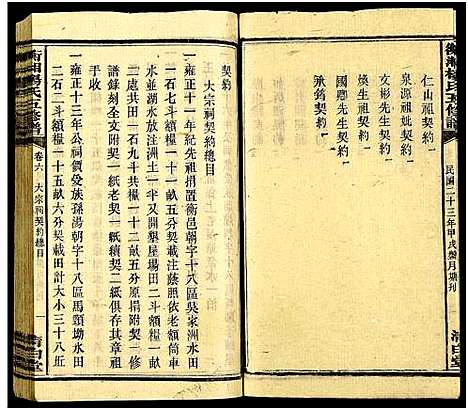 衡湘楊氏五修譜
民國二十三年甲戌
清白堂
仁山祖契約
泉源祖妣契約
文彬先生契約
煥生祖契約
國
先生契約
承筠契約
契約
大宗祠契約總目
一雍正十一年紀先祖捐置衡邑朝字十八區吳家沖水田
一石七斗額糧一十畝五分契載注蔭照依老額筒車
水並湖水放注洲土一半又開墾屋場田二斗額糧一
畝五分共田一石九斗共糧一十二畝五分原捐附契
譜錄刻全文附契一紙續契二紙俱存其章祖
手收
一雍正十三年公祠價受族孫湯朝字十八區馬頸坳水田
二石二斗額糧二十五畝六分契載田計大小三十八坵
衡湘楊氏五修譜
卷六
大宗祠契約總目
一
清白堂